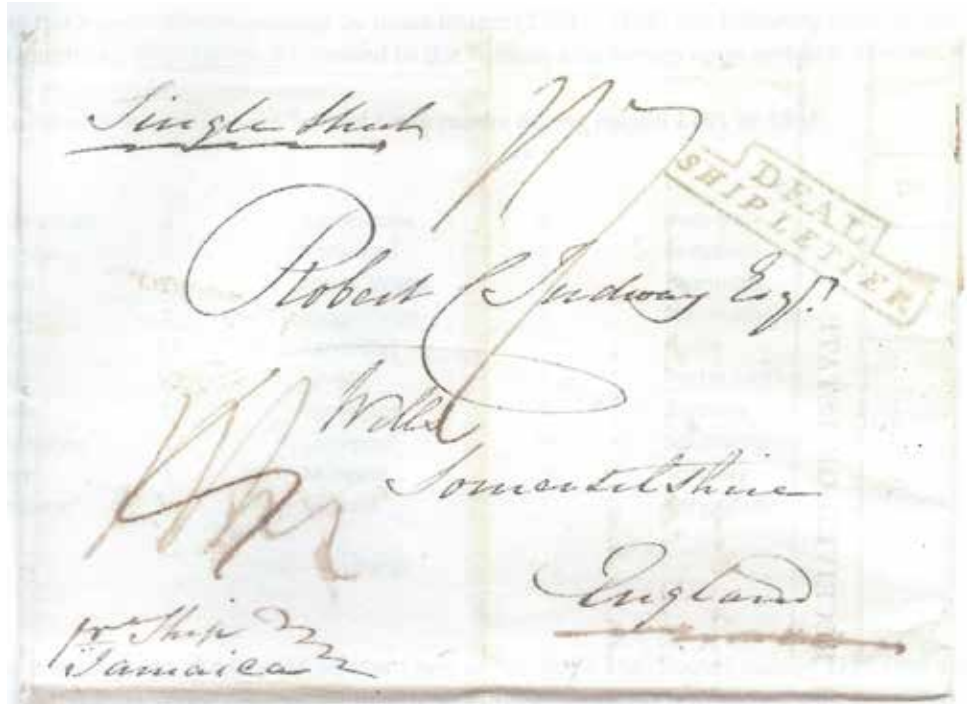 Single Sheet
DEAL
SHIP LETTER
Robert C Tudway Esqr.
Wells
Somersetshire
England
pr Ship
Jamaica